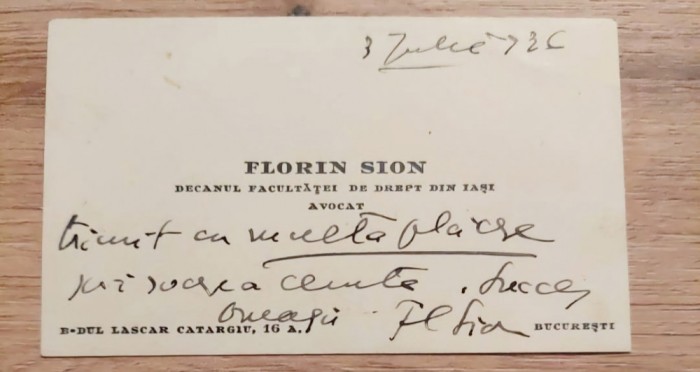 3 Iulie 936
FLORIN SION
DECANUL FACULTĂŢEI DE DREPT DIN IAŞI
AVOCAT
trimit cu multă plăcere
scrisoarea cerută. Succes
Omagii Fl Sion
B-DUL LASCAR CATARGIU, 16 A. BUCUREŞTI